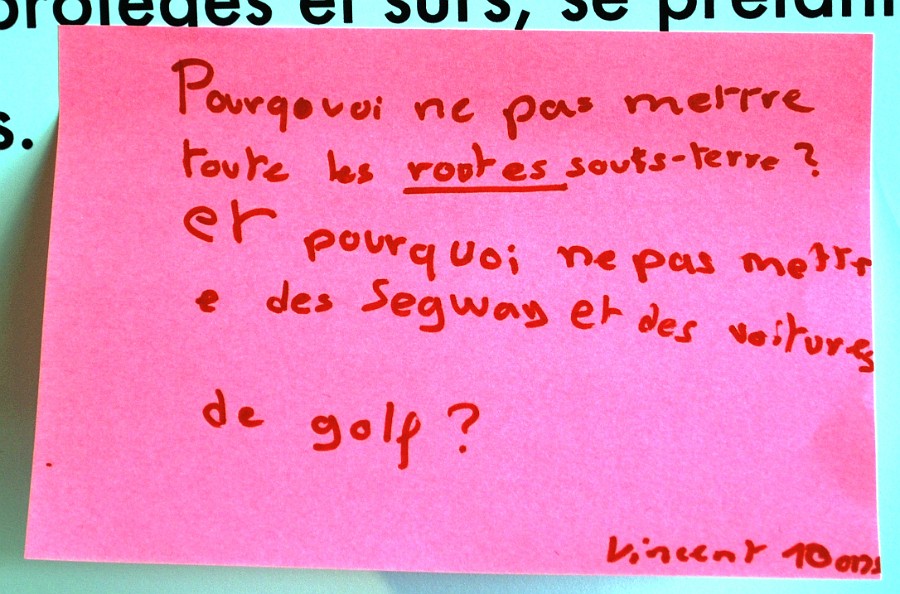 protégés et sûrs, se prélant
s.
Pourquoi ne pas mettre
toute les routes souts-terre?
et pourquoi ne pas mettr
e des Segway et des voitures
de golf?
Vincent 10 ans